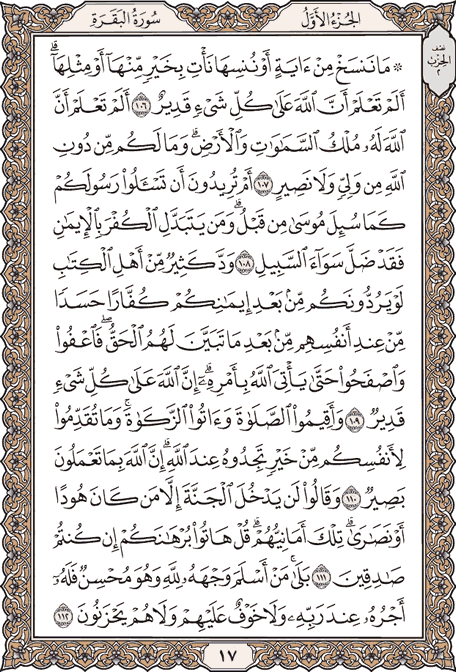 الجُزْءُ الأَوَّلُ
سُورَةُ البَقَرَةِ
نصف
الحزب
٢
۞ مَا نَنسَخْ مِنْ ءَايَةٍ أَوْ نُنسِهَا نَأْتِ بِخَيْرٍ مِّنْهَآ أَوْ مِثْلِهَآ ۗ
أَلَمْ تَعْلَمْ أَنَّ ٱللَّهَ عَلَىٰ كُلِّ شَىْءٍ قَدِيرٌ ١٠٦ أَلَمْ تَعْلَمْ أَنَّ
ٱللَّهَ لَهُۥ مُلْكُ ٱلسَّمَـٰوَٰتِ وَٱلْأَرْضِ ۗ وَمَا لَكُم مِّن دُونِ
ٱللَّهِ مِن وَلِىٍّ وَلَا نَصِيرٍ ١٠٧ أَمْ تُرِيدُونَ أَن تَسْـَٔلُوا۟ رَسُولَكُمْ
كَمَا سُئِلَ مُوسَىٰ مِن قَبْلُ ۗ وَمَن يَتَبَدَّلِ ٱلْكُفْرَ بِٱلْإِيمَـٰنِ
فَقَدْ ضَلَّ سَوَآءَ ٱلسَّبِيلِ ١٠٨ وَدَّ كَثِيرٌ مِّنْ أَهْلِ ٱلْكِتَـٰبِ
لَوْ يَرُدُّونَكُم مِّنۢ بَعْدِ إِيمَـٰنِكُمْ كُفَّارًا حَسَدًا
مِّنْ عِندِ أَنفُسِهِم مِّنۢ بَعْدِ مَا تَبَيَّنَ لَهُمُ ٱلْحَقُّ ۖ فَٱعْفُوا۟
وَٱصْفَحُوا۟ حَتَّىٰ يَأْتِىَ ٱللَّهُ بِأَمْرِهِۦٓ ۗ إِنَّ ٱللَّهَ عَلَىٰ كُلِّ شَىْءٍ
قَدِيرٌ ١٠٩ وَأَقِيمُوا۟ ٱلصَّلَوٰةَ وَءَاتُوا۟ ٱلزَّكَوٰةَ ۚ وَمَا تُقَدِّمُوا۟
لِأَنفُسِكُم مِّنْ خَيْرٍ تَجِدُوهُ عِندَ ٱللَّهِ ۗ إِنَّ ٱللَّهَ بِمَا تَعْمَلُونَ
بَصِيرٌ ١١٠ وَقَالُوا۟ لَن يَدْخُلَ ٱلْجَنَّةَ إِلَّا مَن كَانَ هُودًا
أَوْ نَصَـٰرَىٰ ۗ تِلْكَ أَمَانِيُّهُمْ ۗ قُلْ هَاتُوا۟ بُرْهَـٰنَكُمْ إِن كُنتُمْ
صَـٰدِقِينَ ١١١ بَلَىٰ مَنْ أَسْلَمَ وَجْهَهُۥ لِلَّهِ وَهُوَ مُحْسِنٌ فَلَهُۥٓ
أَجْرُهُۥ عِندَ رَبِّهِۦ وَلَا خَوْفٌ عَلَيْهِمْ وَلَا هُمْ يَحْزَنُونَ ١١٢
١٧